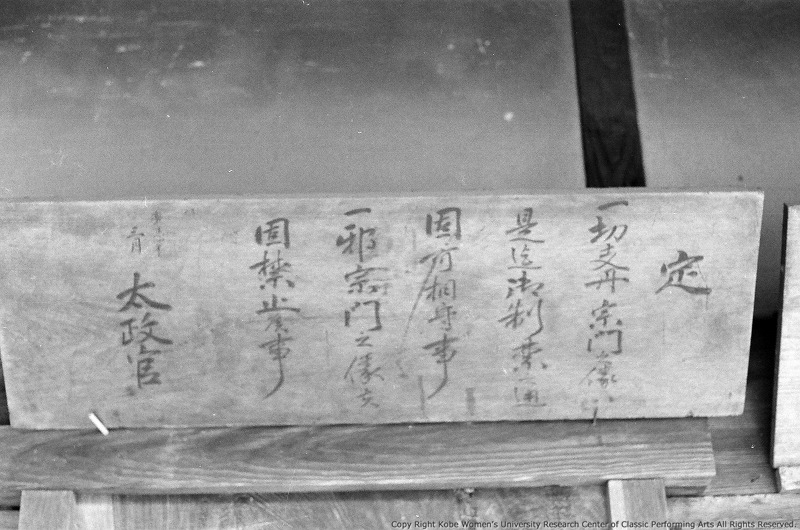 定
一切支丹宗門之儀ハ
是迄御制禁之通
固可相守事
一邪宗門之儀ハ
固禁止候事
三月
太政官
Copy Right Kobe Women's University Research Center of Classic Performing Arts All Rights Reserved